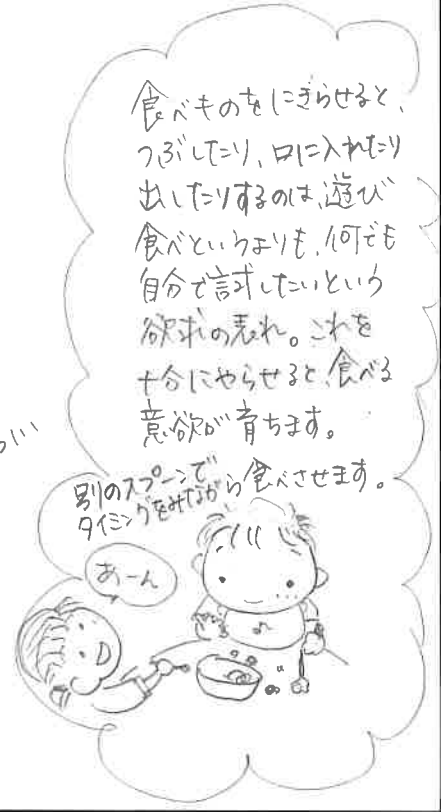 食べものをにぎらせると、
つぶしたり、口に入れたり
出したりするのは、遊び
食べというよりも、何でも
自分で試したいという
欲求の表れ。これを
十分にやらせると、食べる
意欲が育ちます。
別のスプーンで
タイミングをみながら食べさせます。
あーん